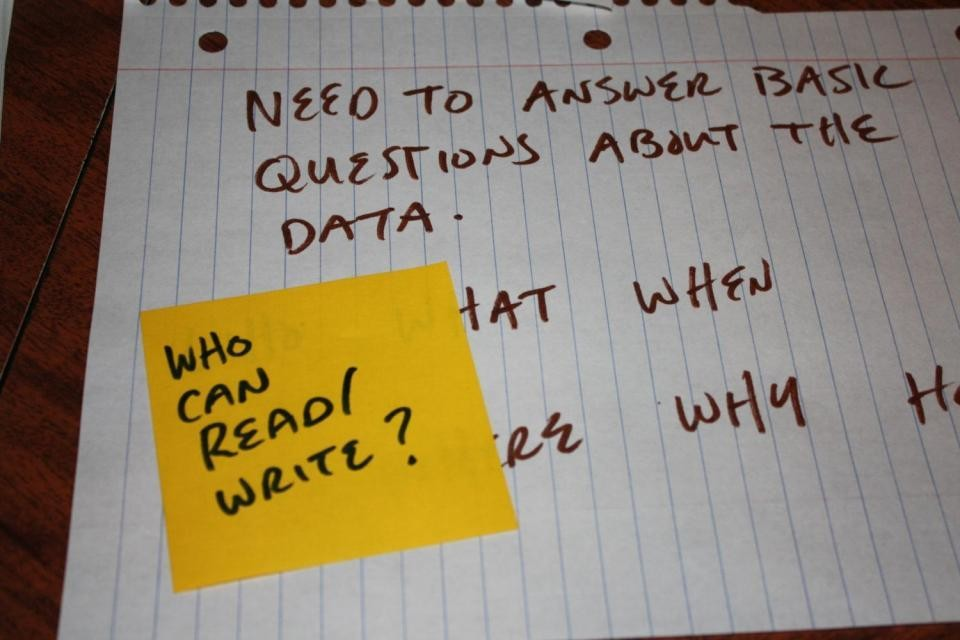 NEED TO ANSWER BASIC
QUESTIONS ABOUT THE
DATA.
WHAT WHEN
WHY
WHO
CAN
READ/
WRITE?